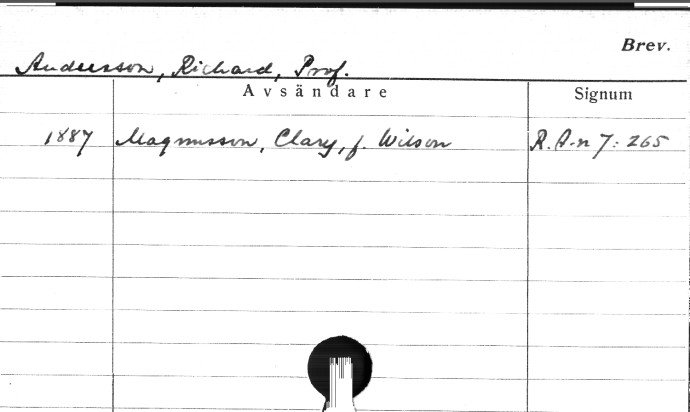 Brev.
Andersson, Richard, Prof.
Avsändare Signum
1887 Magnusson, Clary, f. Wilson R.A-n 7: 265